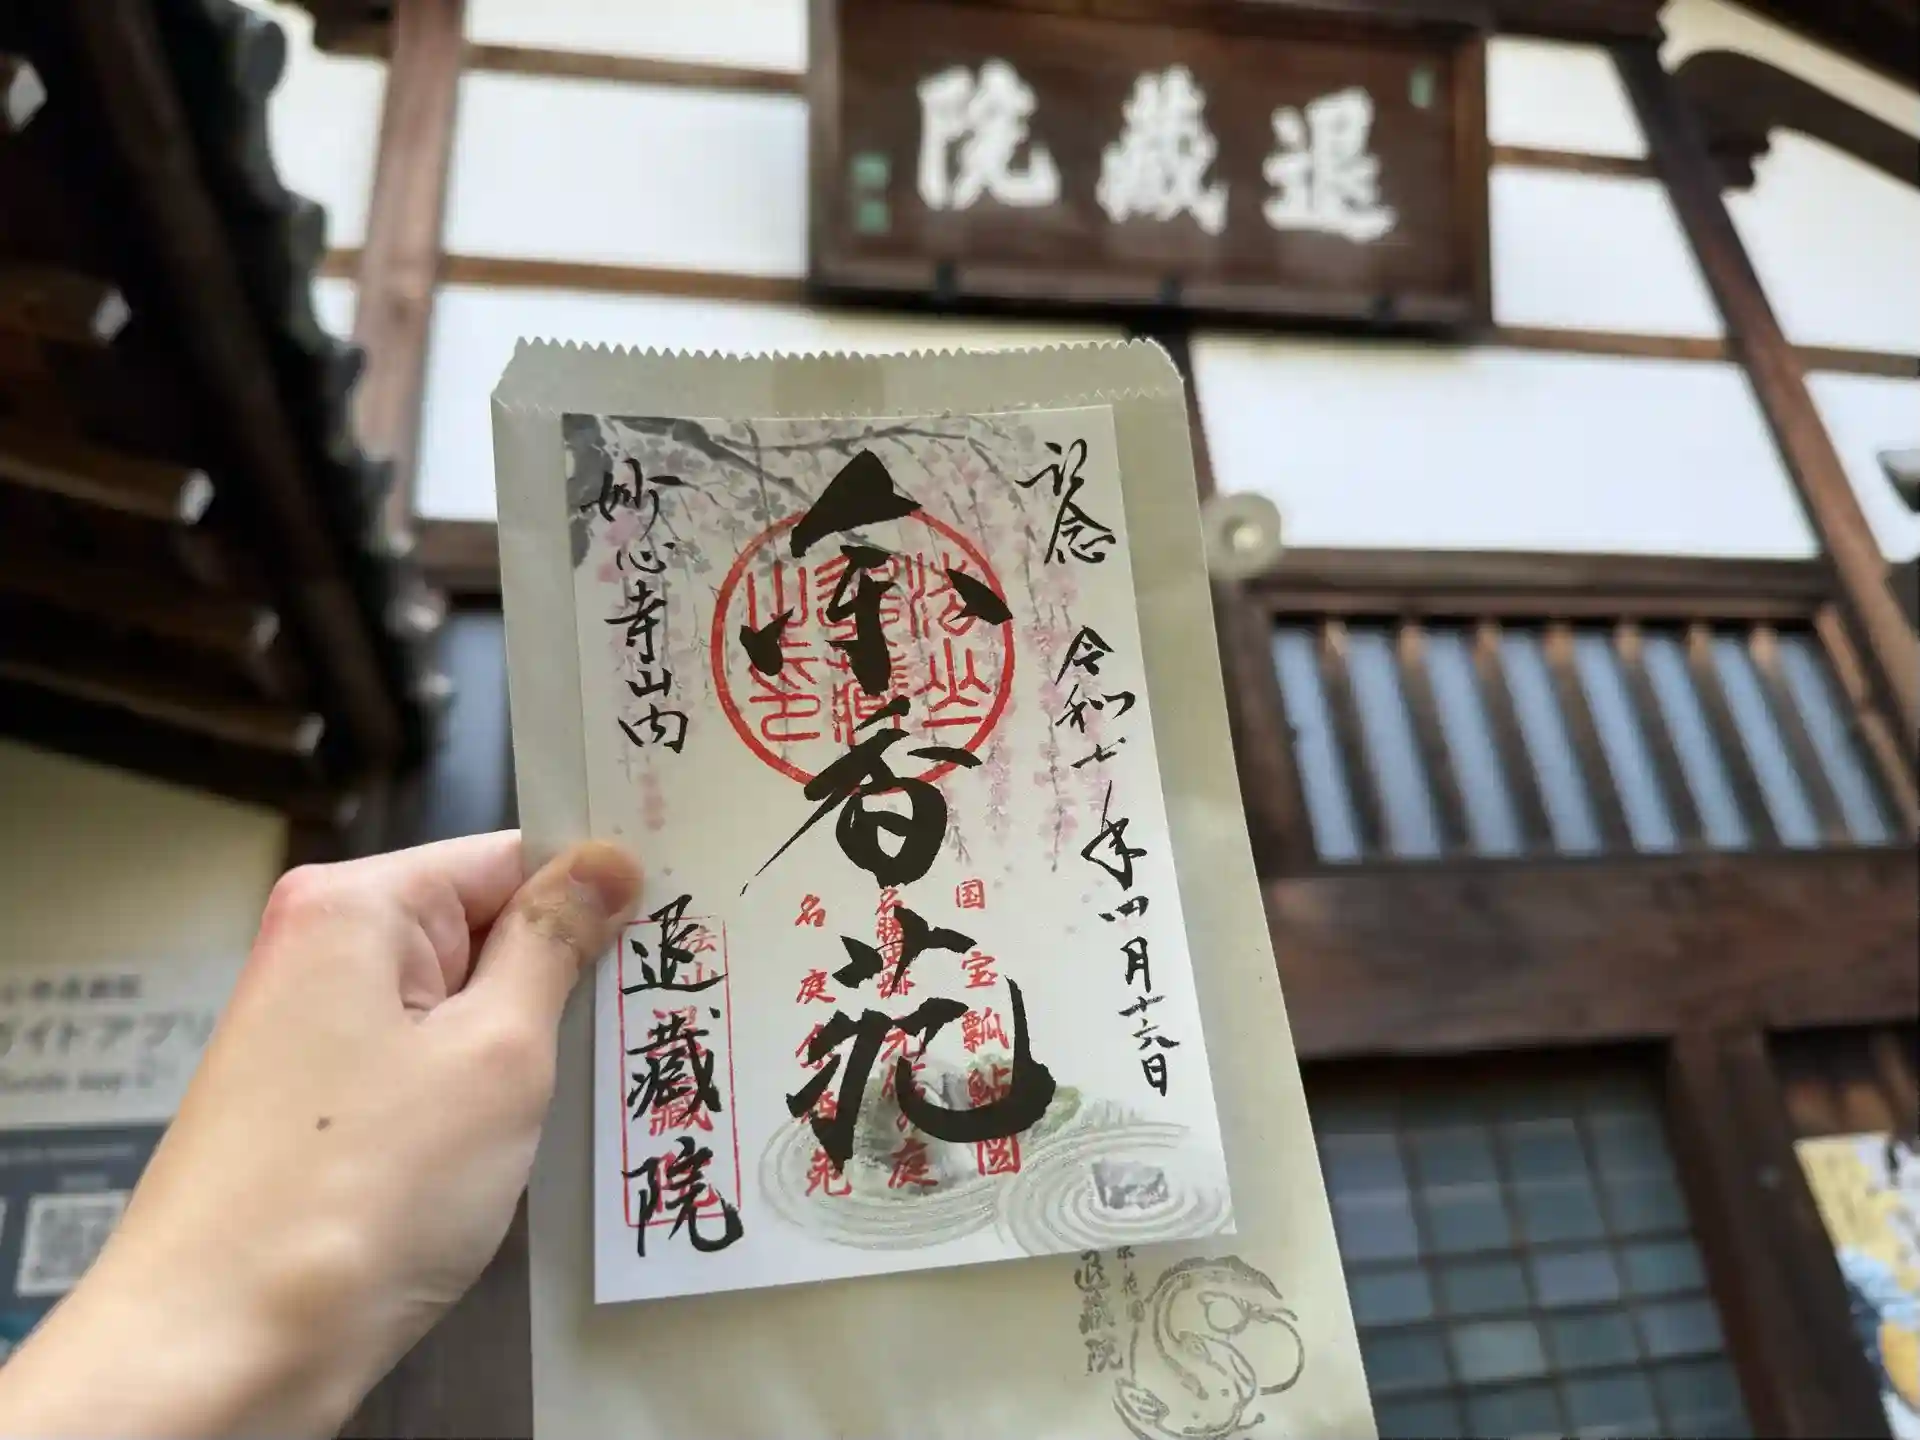 退藏院
記念
令和七年四月十六日
余香苑
妙心寺山内
退藏院
国宝瓢鮎図
名勝史跡元信の庭
名庭余香苑
退蔵院
ガイドアプリ